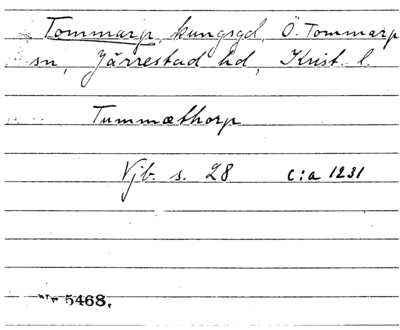 Tommarp, kungsgd, Ö. Tommarp
sn, Järrestad hd, Krist. l.
Tummæthorp
Vjb. s. 28 c:a 1231
5468.